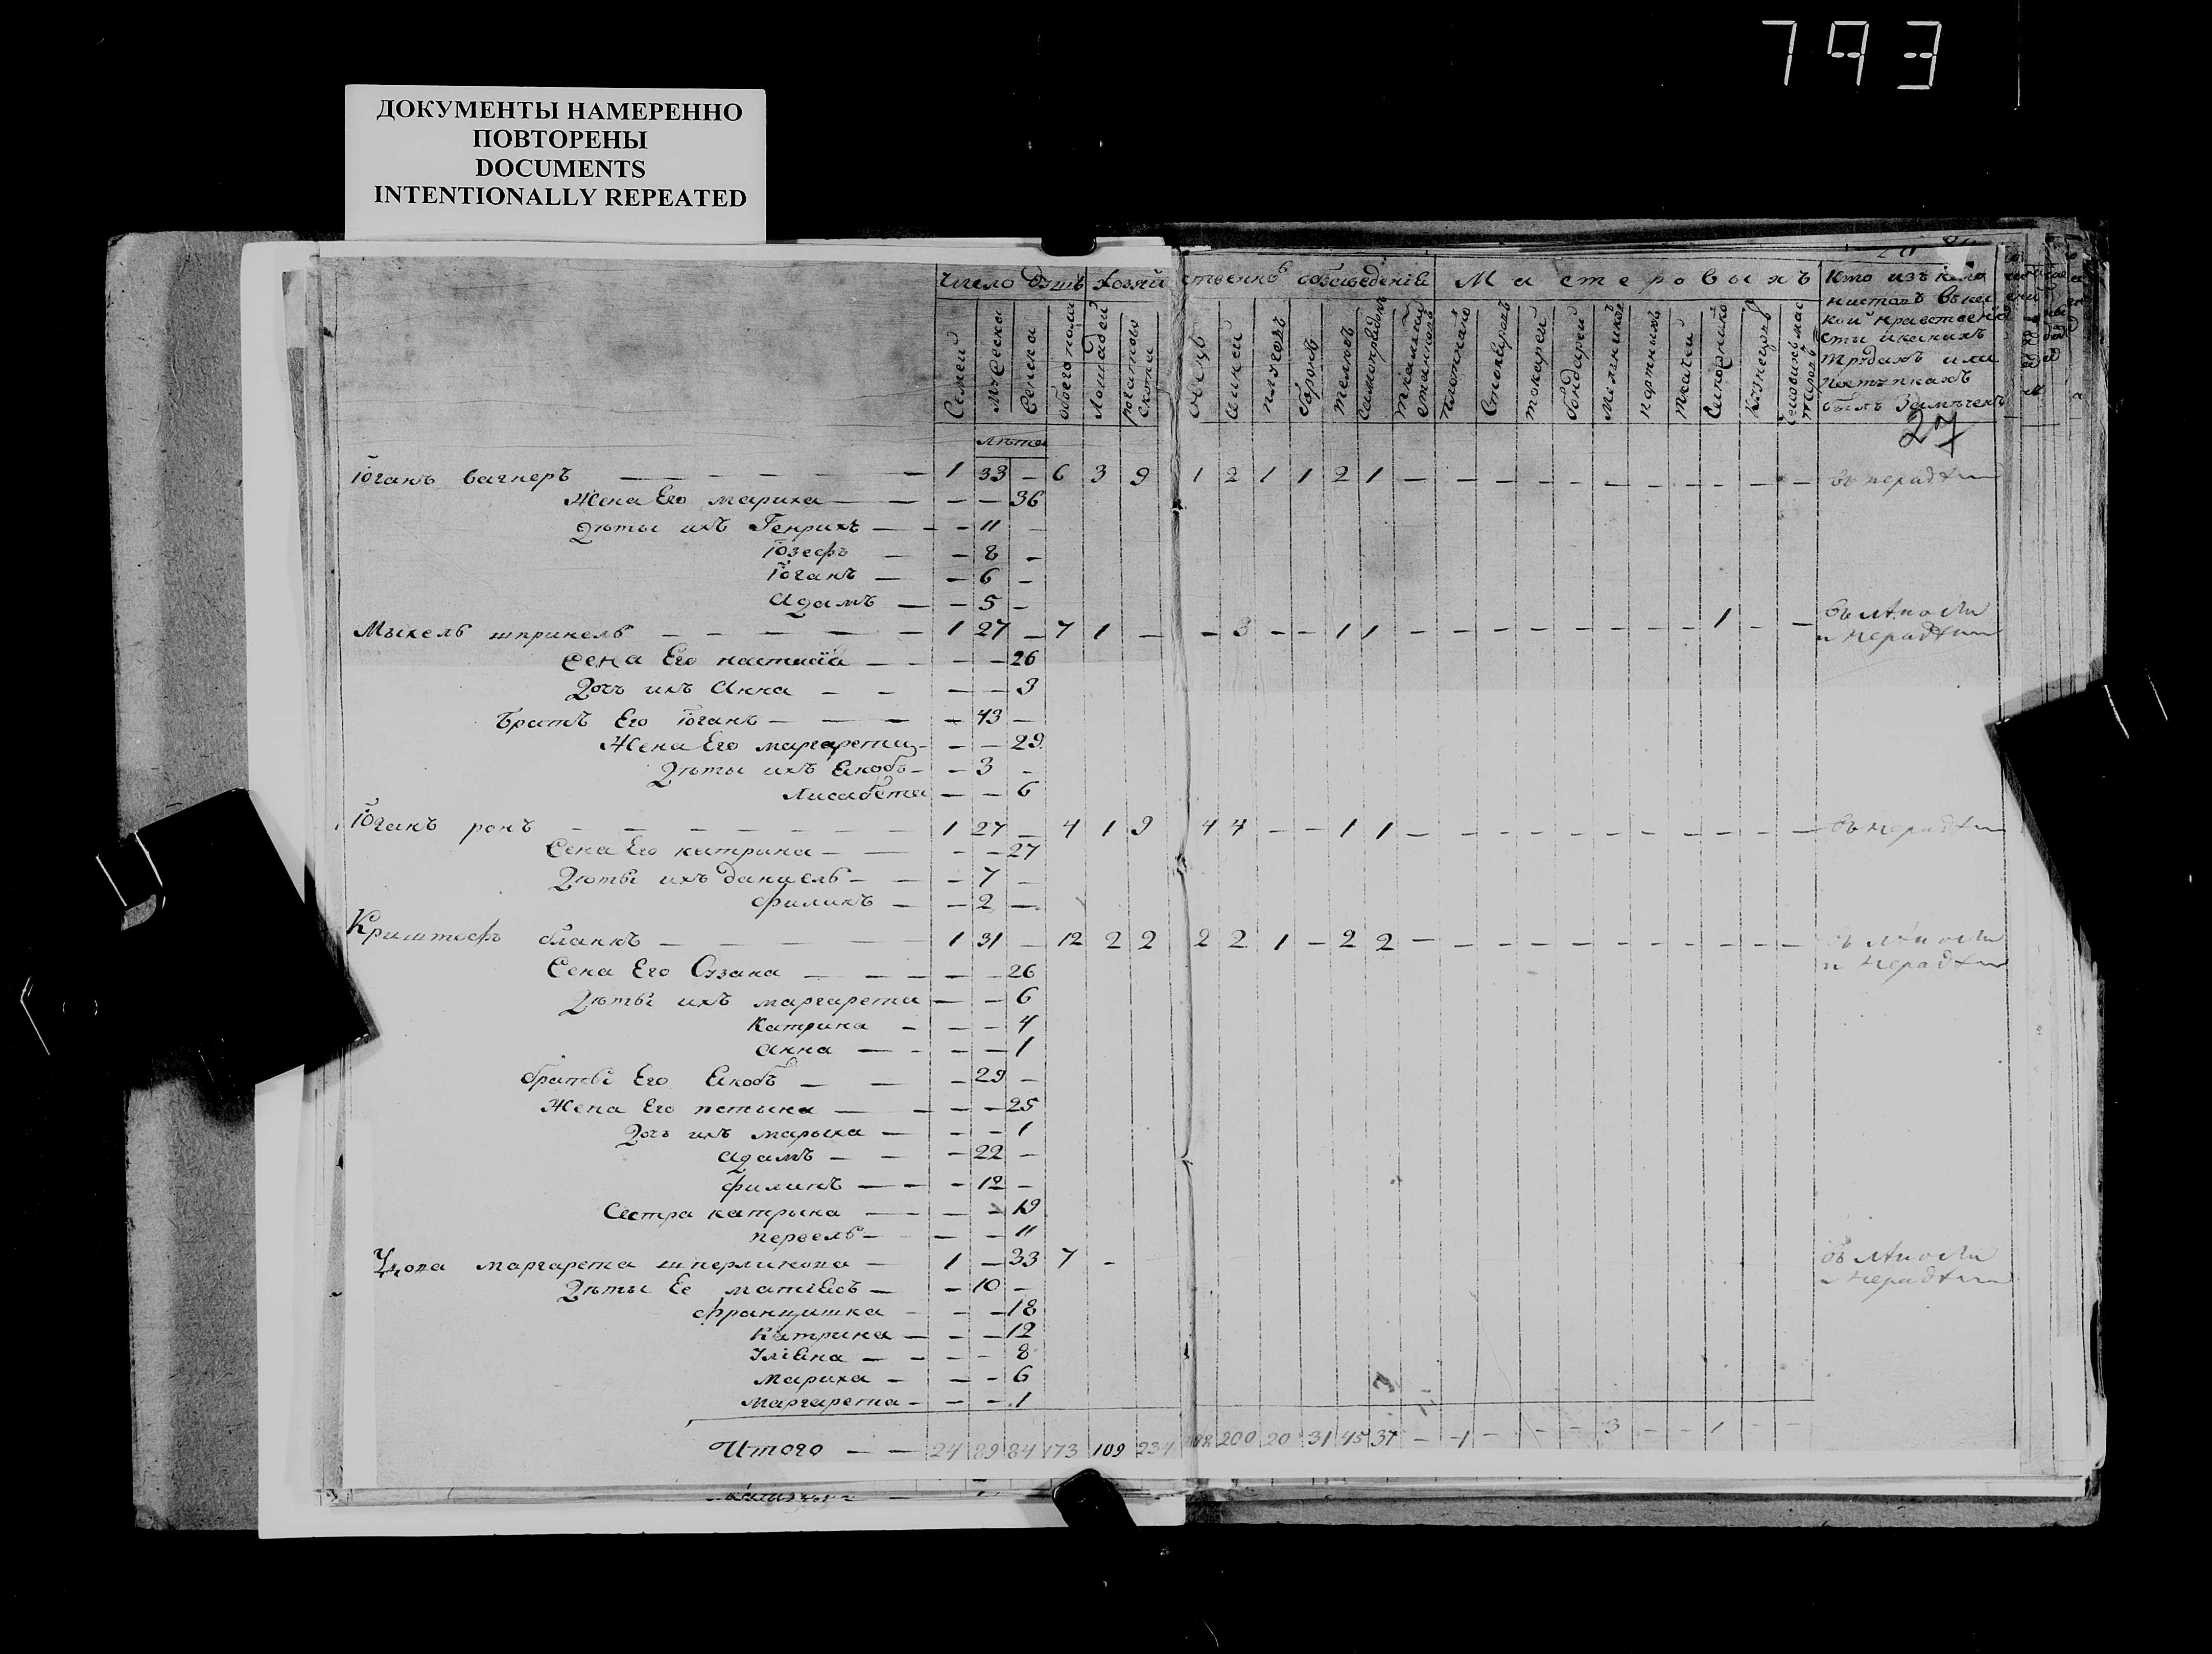 793
ДОКУМЕНТЫ НАМЕРЕННО
ПОВТОРЕНЫ
DOCUMENTS
INTENTIONALLY REPEATED
Число душъ Хозяйственнъ обзаведенiѣ Мастеровыхъ
Кто изъ коло
нистовъ въ ка
кой нравственно
сти и какихъ
трудахъ или
поступкахъ
былъ Замѣченъ
Семей Мужеска Женска обоего пола Лошадей рогатаго скота овецъ свиней плуговъ боронъ телегъ Самопрядокъ ткацкихъ становъ плотниковъ Столяровъ токарей бондарей Мельниковъ портныхъ ткачей Сапожниковъ Кузнецовъ
27
лѣта
Iоганъ вагнеръ — 1 33 — 6 3 9 1 2 1 1 2 1 — въ нерадѣнiи
Жена Его мариха — — — 36
Дѣты ихъ Генрихъ — — 11 —
Iозефъ — — 8 —
Iоганъ — — 6 —
Адамъ — — 5 —
Мыхель шпринель — 1 27 — 7 1 — — 3 — — 1 1 — 1 — — въ лѣности
и нерадѣнiи
Жена Его настисiа — — — 26
Дочъ ихъ Анна — — — 3
Братъ Его Iоганъ — — 43 —
Жена Его маргарета — — — 29
Дѣты ихъ Якобъ — — 3 —
Лисабета — — — 6
Iоганъ ронъ — 1 27 — 4 1 9 4 4 — — 1 1 — въ нерадѣнiи
Жена Его катрина — — — 27
Дѣты ихъ данiель — — 7 —
филипъ — — 2 —
Криштофъ бланкъ — 1 31 — 12 2 2 2 2 1 — 2 2 — въ лѣности
и нерадѣнiи
Жена Его Сузана — — — 26
Дѣты ихъ маргарета — — — 6
Катрина — — — 4
анна — — — 1
братъi Его Якобъ — — 29 —
Жена Его петына — — — 25
Дочъ ихъ марыха — — — 1
адамъ — — 22 —
филипъ — — 12 —
Сестра катрына — — — 19
персель — — — 11
Удова маргарета шперликова — 1 — 33 7 — въ лѣности
и нерадѣнiи
Дѣты Ее матiясъ — — 10 —
францишка — — — 18
Катрина — — — 12
Улiяна — — — 8
Мариха — — — 6
маргарета — — — 1
Итого — — 24 89 84 173 109 234 200 20 31 45 37 — 1 — — — — 3 — — 1 — —